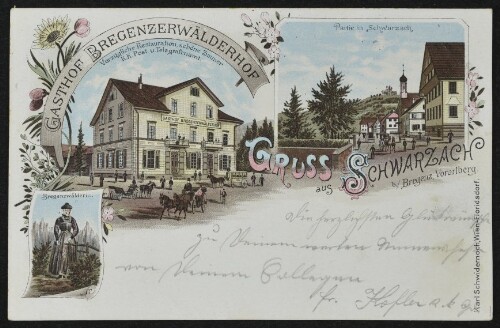 GASTHOF BREGENZERWÄLDERHOF
Vorzügliche Restauration, schöne Zimmer
K.K. Post u. Telegrafenamt.
Partie in Schwarzach
GASTHOF BREGENZERWÄLDERHOF
GRUSS
aus SCHWARZACH
by Bregenz Vorarlberg
Bregenzwälderin
Die herzlichsten Glückwünsche
zu Deinem werten Namensfeste
von Deinem Collegen
Fr. Höfler
Karl Schwidernoch, Wien-